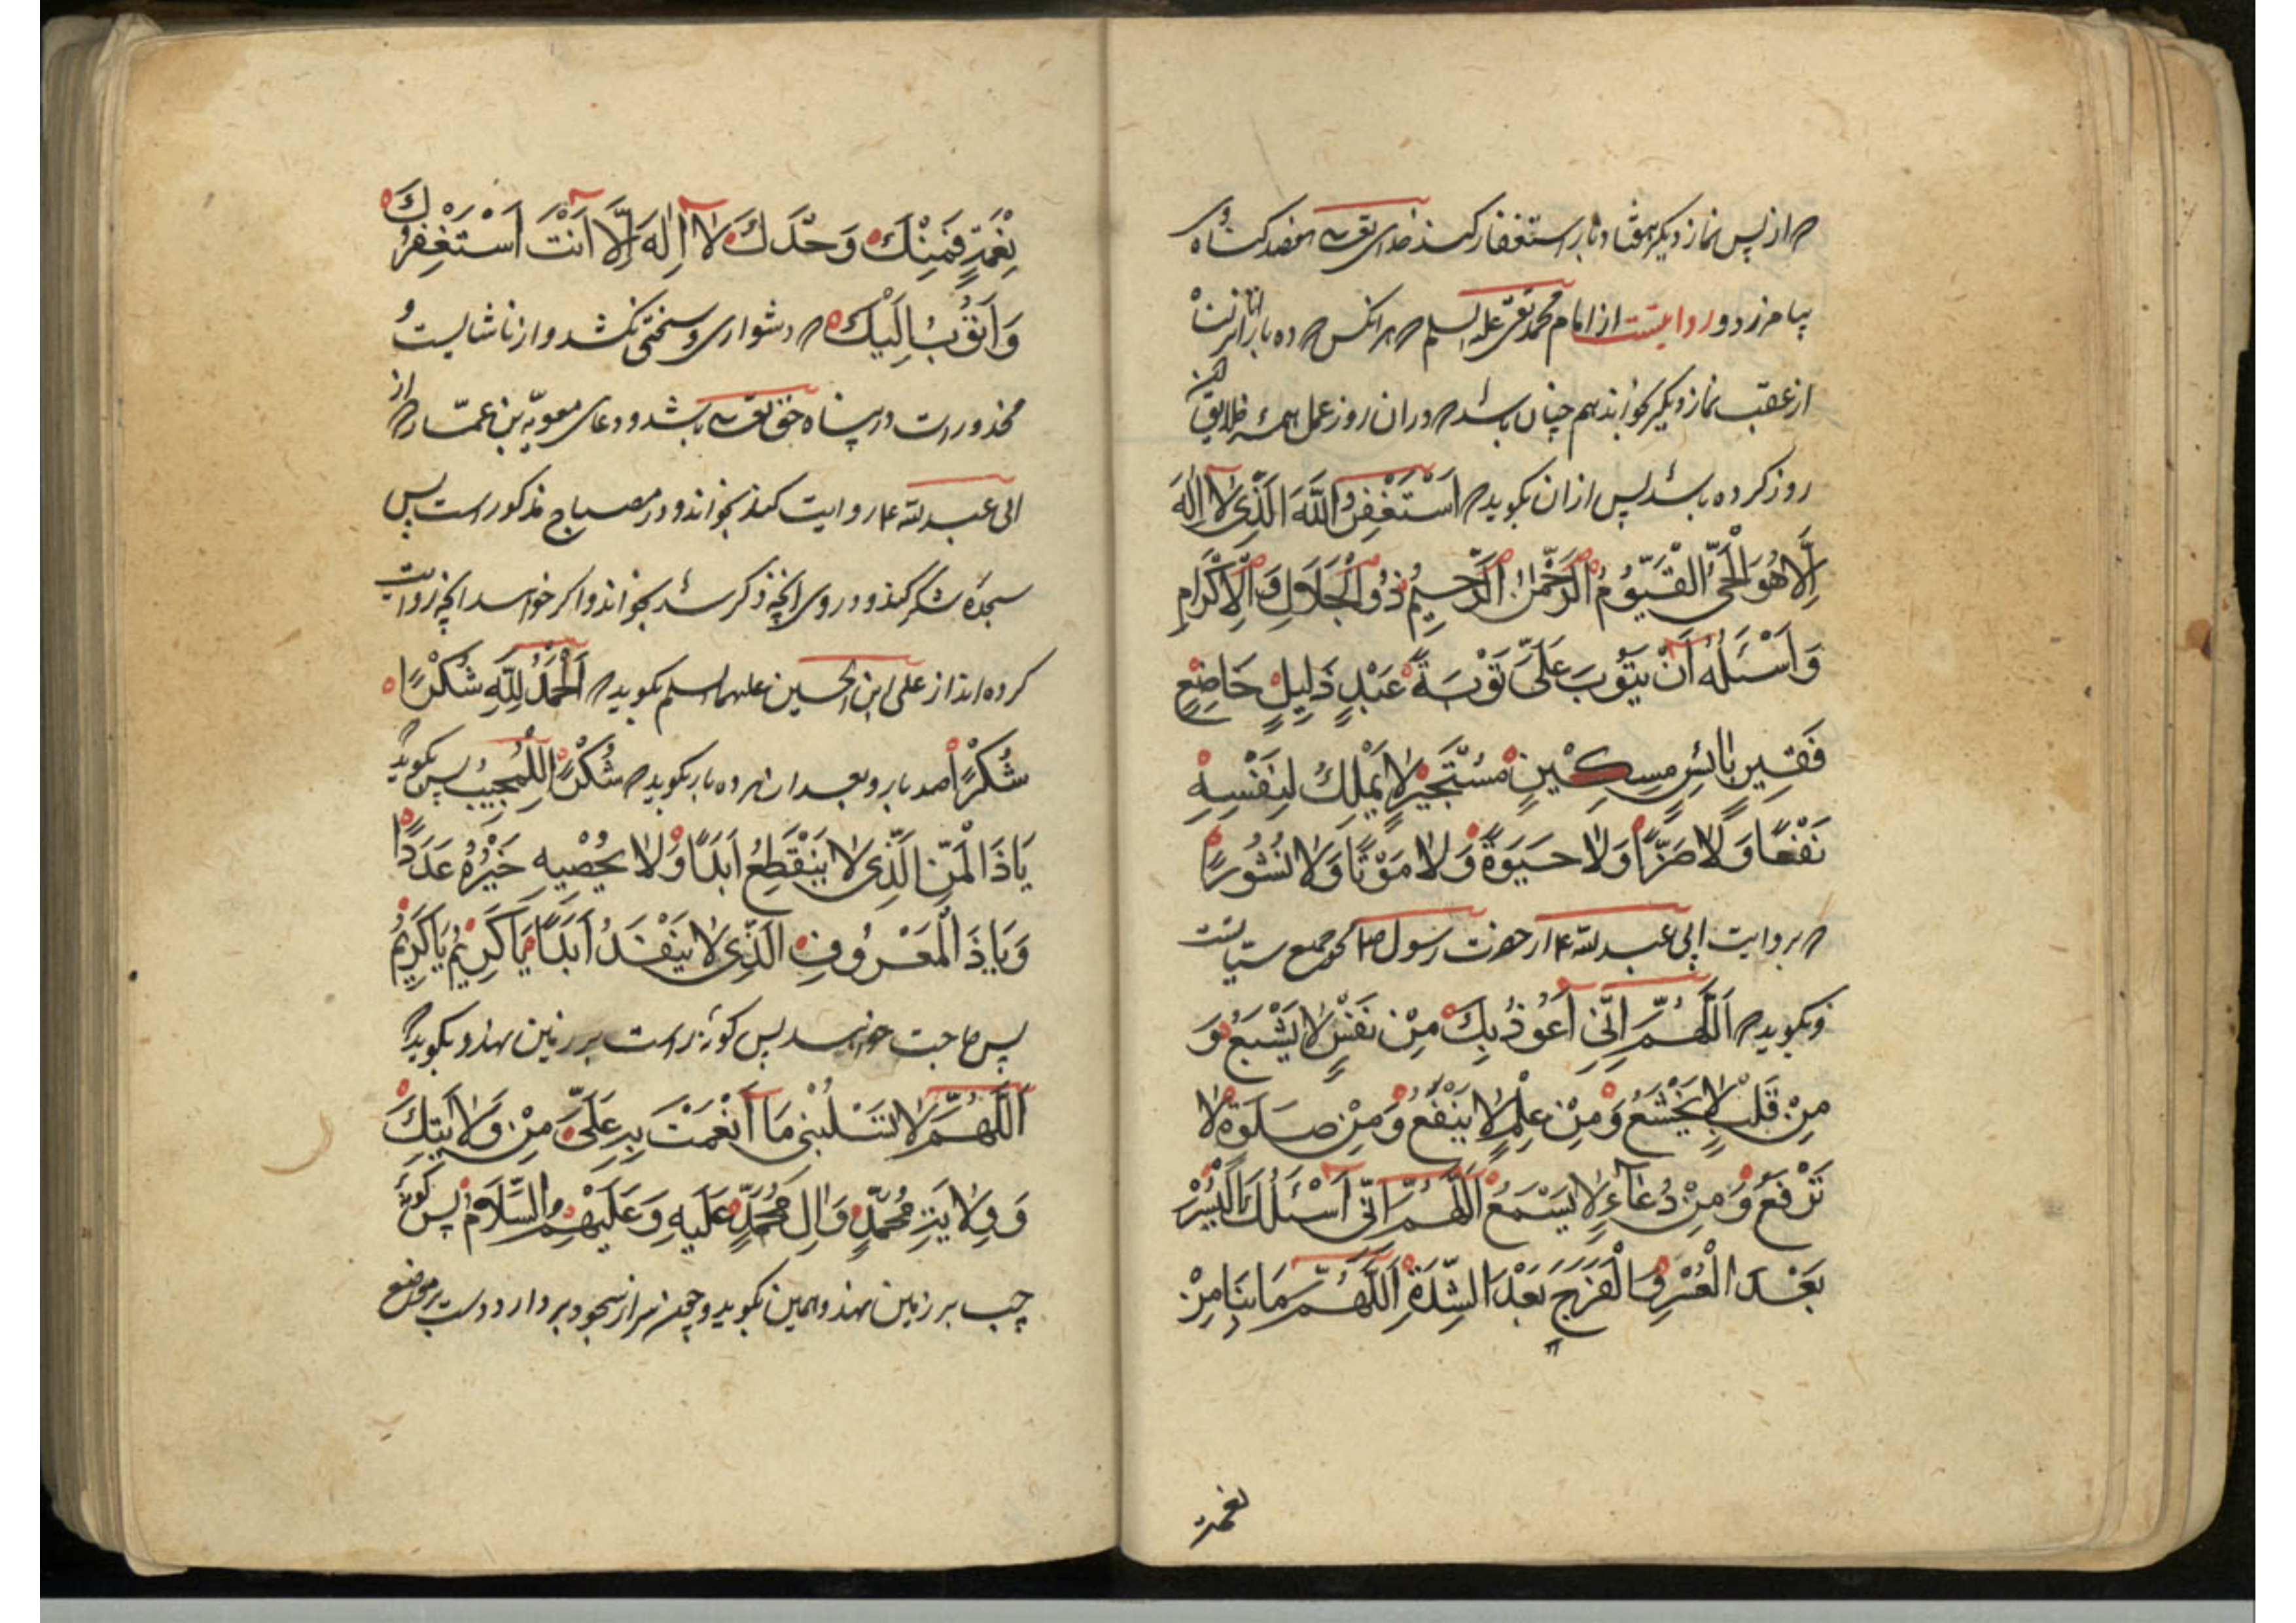 که از پس نماز دیگر هفتاد بار استغفار کند خدای تعالی هفصد گناه
بیامرزد و روایتست از امام محمد تقی علیه السلم که هر انکس که ده بار انا انزلنا
از عقب نماز دیگر بخواند هم چنان باشد که در ان روز عمل همه خلایق
روز کرده باشد پس از ان بگوید که اَسْتَغْفِرُ اللّٰهَ الَّذِی لٰا اِلٰهَ
اِلَّا هُوَ الْحَیُّ الْقَیُّومُ الرَّحْمٰنُ الرَّحِیمُ ذُو الْجَلَالِ وَ الْاِکْرَامِ
وَ اَسْئَلُهُ اَنْ یَتُوبَ عَلَیَّ تَوْبَةَ عَبْدٍ ذَلِیلٍ خَاضِعٍ
فَقِیرٍ بٰائِسٍ مِسکِیْنٍ مُسْتَجِیْرٍ لٰا یَمْلِكُ لِنَفْسِهِ
نَفْعًا وَ لٰا ضَرًّا وَ لٰا حَیٰوةً وَ لٰا مَوْتًا وَ لٰا نُشُورًا
که بروایت ابی عبد الله ع از حضرت رسول ص
و بگوید که اَللّٰهُمَّ اِنِّی اَعُوذُ بِكَ مِنْ نَفْسٍ لٰا یَشْبَعُ وَ
مِنْ قَلْبٍ لٰا یَخْشَعُ وَ مِنْ عِلْمٍ لٰا یَنْفَعُ وَ مِنْ صَلٰوةٍ لٰا
تُرْفَعُ وَ مِنْ دُعَاءٍ لٰا یُسْمَعُ اَللّٰهُمَّ اِنِّی اَسْئَلُكَ الْیُسْرَ
بَعْدَ الْعُسْرِ وَ الْفَرَجَ بَعْدَ الشِّدَّةِ اَللّٰهُمَّ مَا بِنَا مِنْ
نعمة
نِعْمَةٍ فَمِنْكَ وَحْدَكَ لٰا اِلٰهَ اِلَّا اَنْتَ اَسْتَغْفِرُكَ
وَ اَتُوبُ اِلَیْكَ که دشواری و سختی نکشد و از ناشایست و
محذورات در پناه حق تعالی باشد و دعای معویة بن عمار که از
ابی عبد الله ع روایت کند بخواند و در مصباح مذکور است پس
سجدهٔ شکر کند و در وی انچه ذکر شد بخواند و اکر خواهد انچه روایت
کرده اند از علی ابن الحسین علیهما السلم بگوید که اَلْحَمْدُ لِلّٰهِ شُکْرًا
شُکْرًا صد بار و بعد از هر ده بار بگوید که شُکْرًا لِلْمُجِیبِ پس بگوید
یَا ذَا الْمَنِّ الَّذِی لٰا یَنْقَطِعُ اَبَدًا وَ لٰا یُحْصِیهِ غَیْرُهُ عَدَدًا
وَ یَا ذَا الْمَعْرُوفِ الَّذِی لٰا یَنْفَدُ اَبَدًا یَا کَرِیْمُ یَا کَرِیْمُ
پس حاجت خواهد پس کونهٔ راست بر زمین نهد و بگوید که
اَللّٰهُمَّ لٰا تَسْلُبْنِی مَا اَنْعَمْتَ بِهِ عَلَیَّ مِنْ وَلٰایَتِكَ
وَ وِلٰایَةِ مُحَمَّدٍ وَ اٰلِ مُحَمَّدٍ عَلَیهِ وَ عَلَیْهِمُ السَّلَامُ پس کونهٔ
چپ بر زمین نهد و همین بگوید و چون سر از سجود بر دارد دست بر موضع